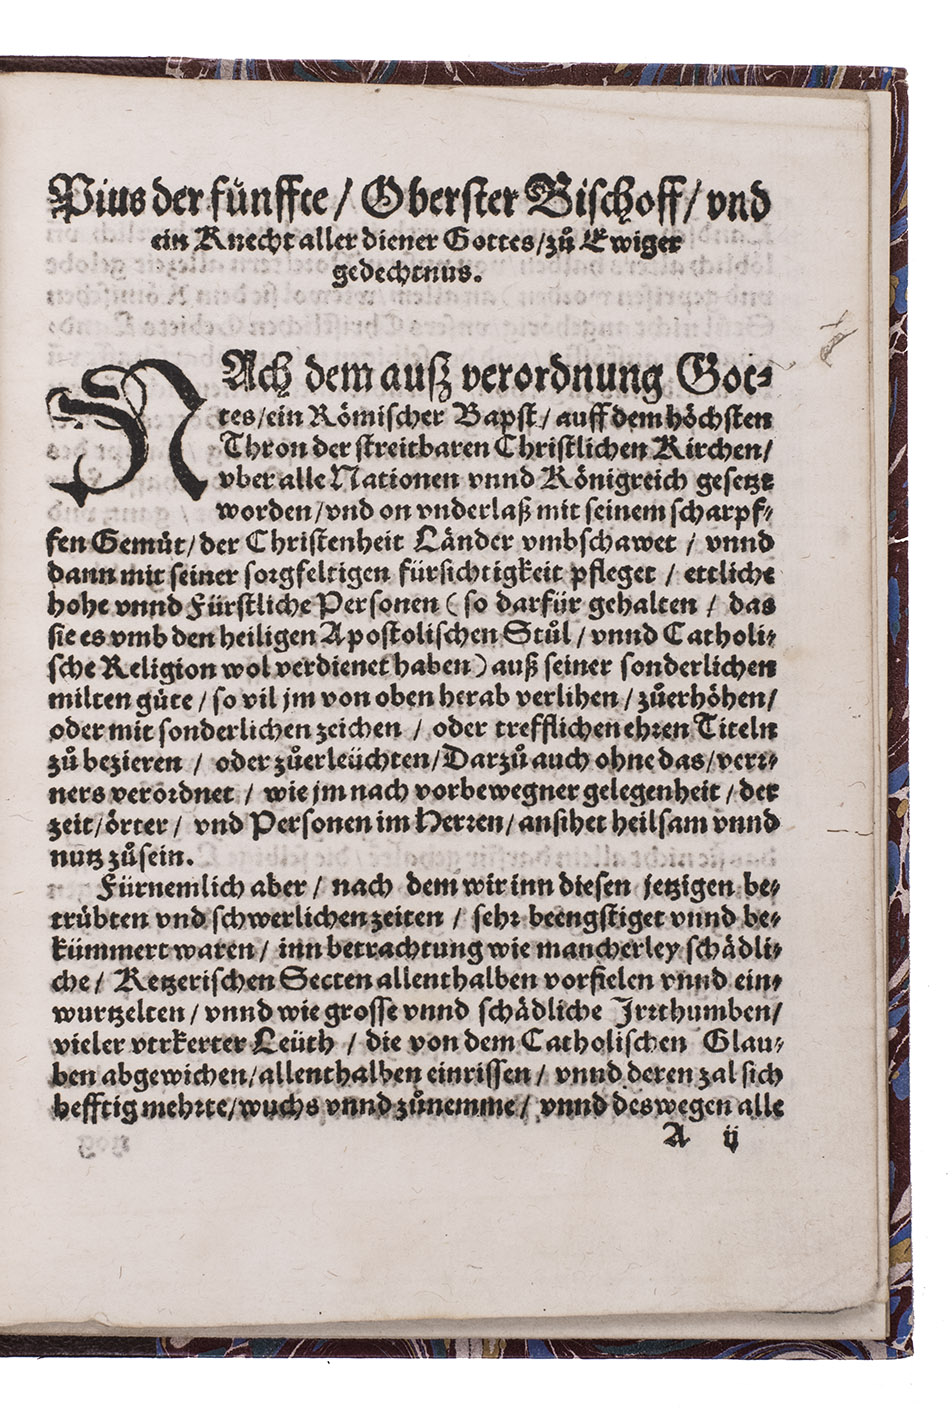 Pius der fünffte / Oberster Bischoff / vnd
ein Knecht aller diener Gottes / zů Ewiger
gedechtnus.
NAch dem auß verordnung Got⸗
tes / ein Römischer Bapst / auff dem höchsten
Thron der streitbaren Christlichen Kirchen /
vber alle Nationen vnnd Königreich gesetzt
worden / vnd on vnderlaß mit seinem scharpf⸗
fen Gemüt / der Christenheit Länder vmbschawet / vnnd
dann mit seiner sorgfeltigen fürsichtigkeit pfleget / ettliche
hohe vnnd Fürstliche Personen ( so darfür gehalten / das
sie es vmb den heiligen Apostolischen Stůl / vnnd Catholi⸗
sche Religion wol verdienet haben ) auß seiner sonderlichen
milten güte / so vil jm von oben herab verlihen / zůerhöhen /
oder mit sonderlichen zeichen / oder trefflichen ehren Titeln
zů bezieren / oder zůerleüchten / Darzů auch ohne das / verr⸗
ners verordnet / wie jm nach vorbewegner gelegenheit / der
zeit / örter / vnd Personen im Herren / ansihet heilsam vnnd
nutz zůsein.
Fürnemlich aber / nach dem wir inn diesen jetzigen be⸗
trübten vnd schwerlichen zeiten / sehr beengstiget vnnd be⸗
kümmert waren / inn betrachtung wie mancherley schädli⸗
che / Ketzerischen Secten allenthalben vorfielen vnnd ein⸗
wurtzelten / vnnd wie grosse vnnd schädliche Jrrthumben /
vieler vtrkerter Leüth / die von dem Catholischen Glau⸗
ben abgewichen / allenthalben einrissen / vnnd deren zal sich
hefftig mehrte / wuchs vnnd zůnemme / vnnd deswegen alle
A ij